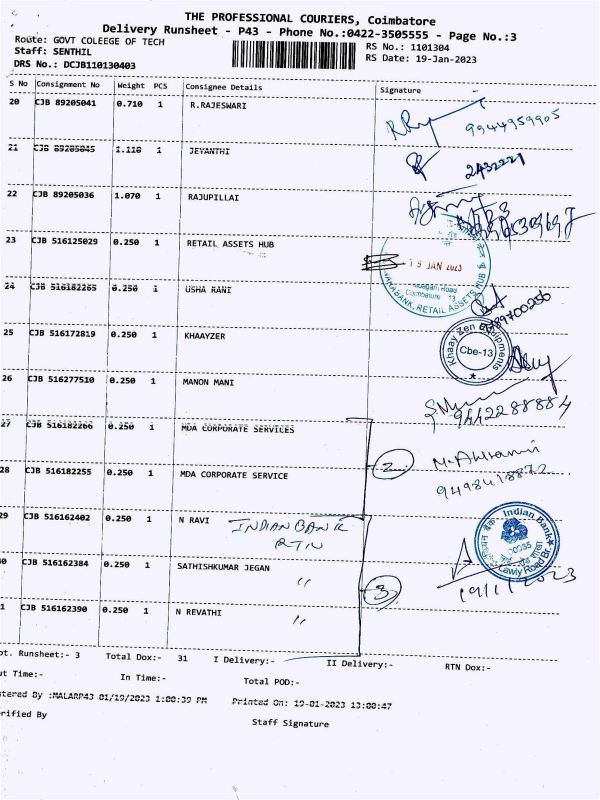 THE PROFESSIONAL COURIERS, Coimbatore
Delivery Runsheet - P43 - Phone No.:0422-3505555 - Page No.:3
Route: GOVT COLEEGE OF TECH
RS No.: 1101304
Staff: SENTHIL
RS Date: 19-Jan-2023
DRS No.: DCJB110130403
S No Consignment No Weight PCS Consignee Details Signature
20 CJB 89205041 0.710 1 R.RAJESWARI
9944959905
21 CJB 89205045 1.110 1 JEYANTHI
2432221
22 CJB 89205036 1.070 1 RAJUPILLAI
23 CJB 516125029 0.250 1 RETAIL ASSETS HUB
19 JAN 2023
Coimbatore 13
BANK, RETAIL ASSETS HUB
24 CJB 516182265 0.250 1 USHA RANI
25 CJB 516172819 0.250 1 KHAAYZER
Khaay Zen Equipments
Cbe-13
26 CJB 516277510 0.250 1 MANON MANI
9442288884
27 CJB 516182266 0.250 1 MDA CORPORATE SERVICES
2
28 CJB 516182255 0.250 1 MDA CORPORATE SERVICE
9498418872
29 CJB 516162402 0.250 1 N RAVI INDIAN BANK
RTN
Indian Bank
Lawly Road Br.
30 CJB 516162384 0.250 1 SATHISHKUMAR JEGAN
"
3
19/1/2023
1 CJB 516162390 0.250 1 N REVATHI
"
pt. Runsheet:- 3 Total Dox:- 31 I Delivery:- II Delivery:- RTN Dox:-
ut Time:- In Time:- Total POD:-
stered By :MALARP43 01/19/2023 1:00:39 PM Printed On: 19-01-2023 13:00:47
erified By Staff Signature